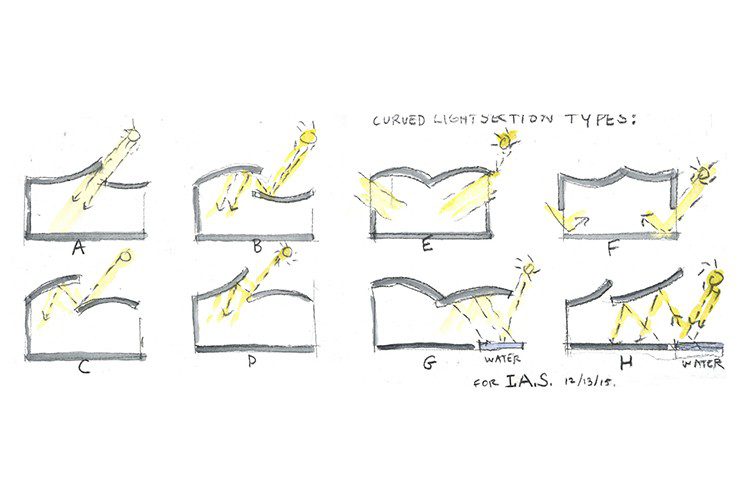 CURVED LIGHT SECTION TYPES:
A
B
E
F
C
D
G
H
WATER
WATER
FOR I.A.S. 12/13/15.